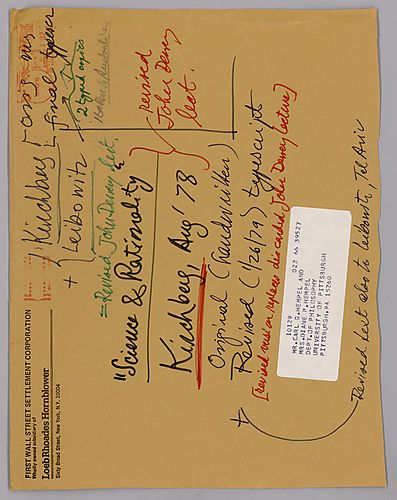 FIRST WALL STREET SETTLEMENT CORPORATION
Wholly owned subsidiary of
LoebRhoades Hornblower
Sixty Broad Street, New York, N.Y. 10004
Kirchberg
+ Leibowitz
final typescr
2 typed copies
= Revised John Dewey lect.
revised
John Dewey
lect.
"Science & Rationality"
Kirchberg, Aug '78
Original (handwritten)
+ Revised (1/26/79) typescript
[revised version, replaces discarded John Dewey lecture]
10129 022 66 39527
MR. CARL G. HEMPEL AND
MRS. DIANE P. HEMPEL
DEPT. OF PHILOSOPHY
UNIVERSITY OF PITTSBURGH
PITTSBURGH, PA 15260
Revised lect also to Leibowitz, Tel Aviv